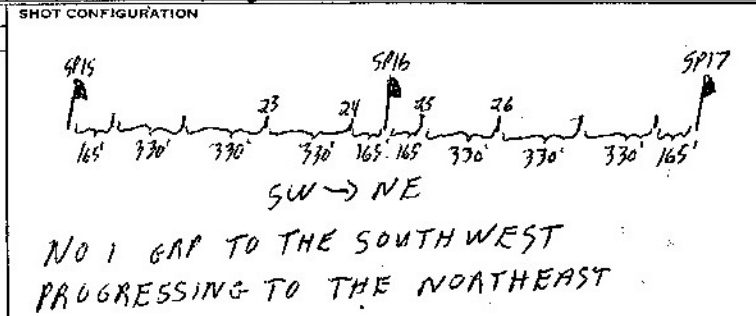 SHOT CONFIGURATION
SP15 SP16 SP17
23 24 25 26
165' 330' 330' 330' 165' 165' 330' 330' 330' 165'
SW → NE
NO 1 GRP TO THE SOUTHWEST
PROGRESSING TO THE NORTHEAST